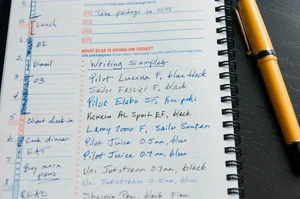 Take package to USPS
Lunch
02
Email
03
Client check-in
Cook dinner
EAT
READ
WHAT ELSE IS GOING ON TODAY?
Writing samples
Pilot Lucina F, blue black
Sailor Fasciner F, black
Pilot Elabo SF,
Kaweco AL Sport EF, black
Lamy 2000 F, Sailor Souten
Pilot Juice 0.5mm, blue
Pilot Juice 0.7mm, blue
Uni Jetstream 0.7mm, black
Uni Jetstream 0.5mm, blue
Sharpie Pen, black fine